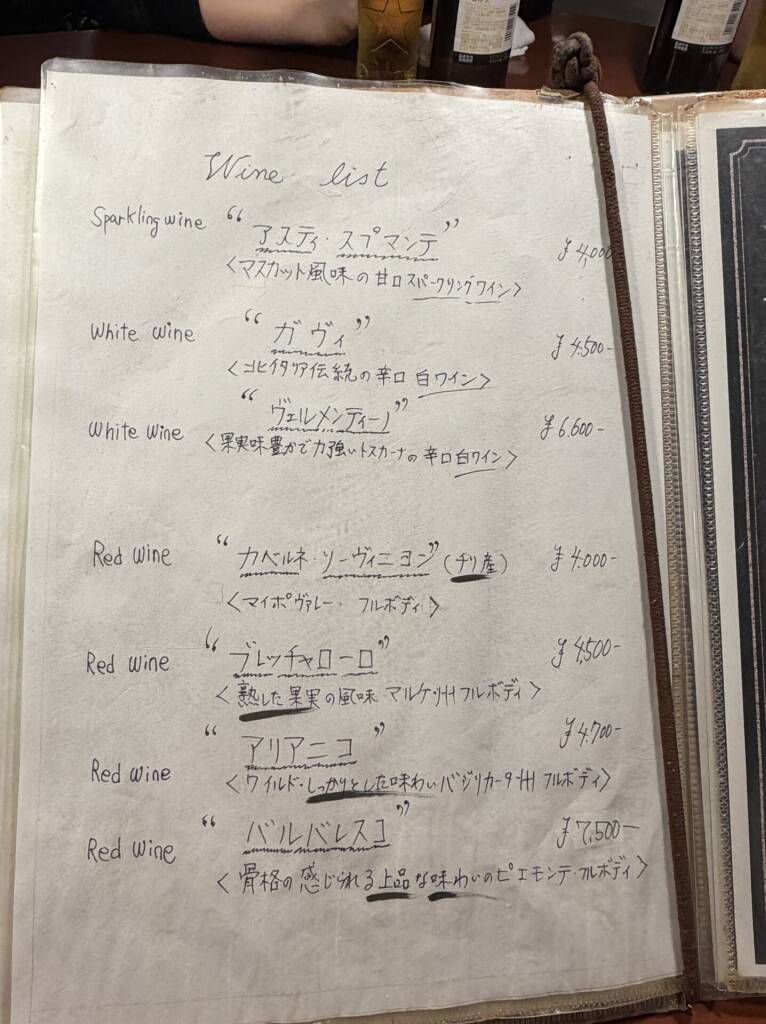 Wine list
Sparkling wine “アスティ・スプマンテ” ¥4,000
<マスカット風味の甘口スパークリングワイン>
White wine “ガヴィ” ¥4.500-
<北イタリア伝統の辛口白ワイン>
White wine “ヴェルメンティーノ” ¥6.600-
<果実味豊かで力強いトスカーナの辛口白ワイン>
Red wine “カベルネ・ソーヴィニヨン”(チリ産) ¥4.000-
<マイポヴァレー・フルボディ>
Red wine “ブレッチャローロ” ¥4,500-
<熟した果実の風味 マルケ州フルボディ>
Red wine “アリアニコ” ¥4.700-
<ワイルド・しっかりとした味わいバジリカータ州 フルボディ>
Red wine “バルバレスコ” ¥7,500-
<骨格の感じられる上品な味わいのピエモンテ・フルボディ>